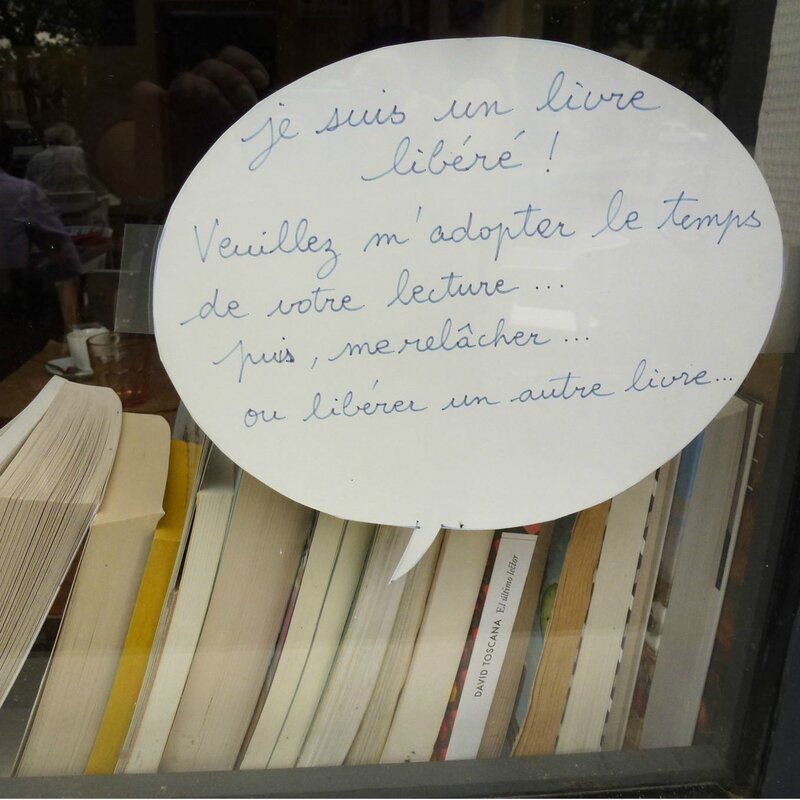 je suis un livre
libéré !
Veuillez m'adopter le temps
de votre lecture ...
puis, me relâcher ...
ou libérer un autre livre...
DAVID TOSCANA El último lector